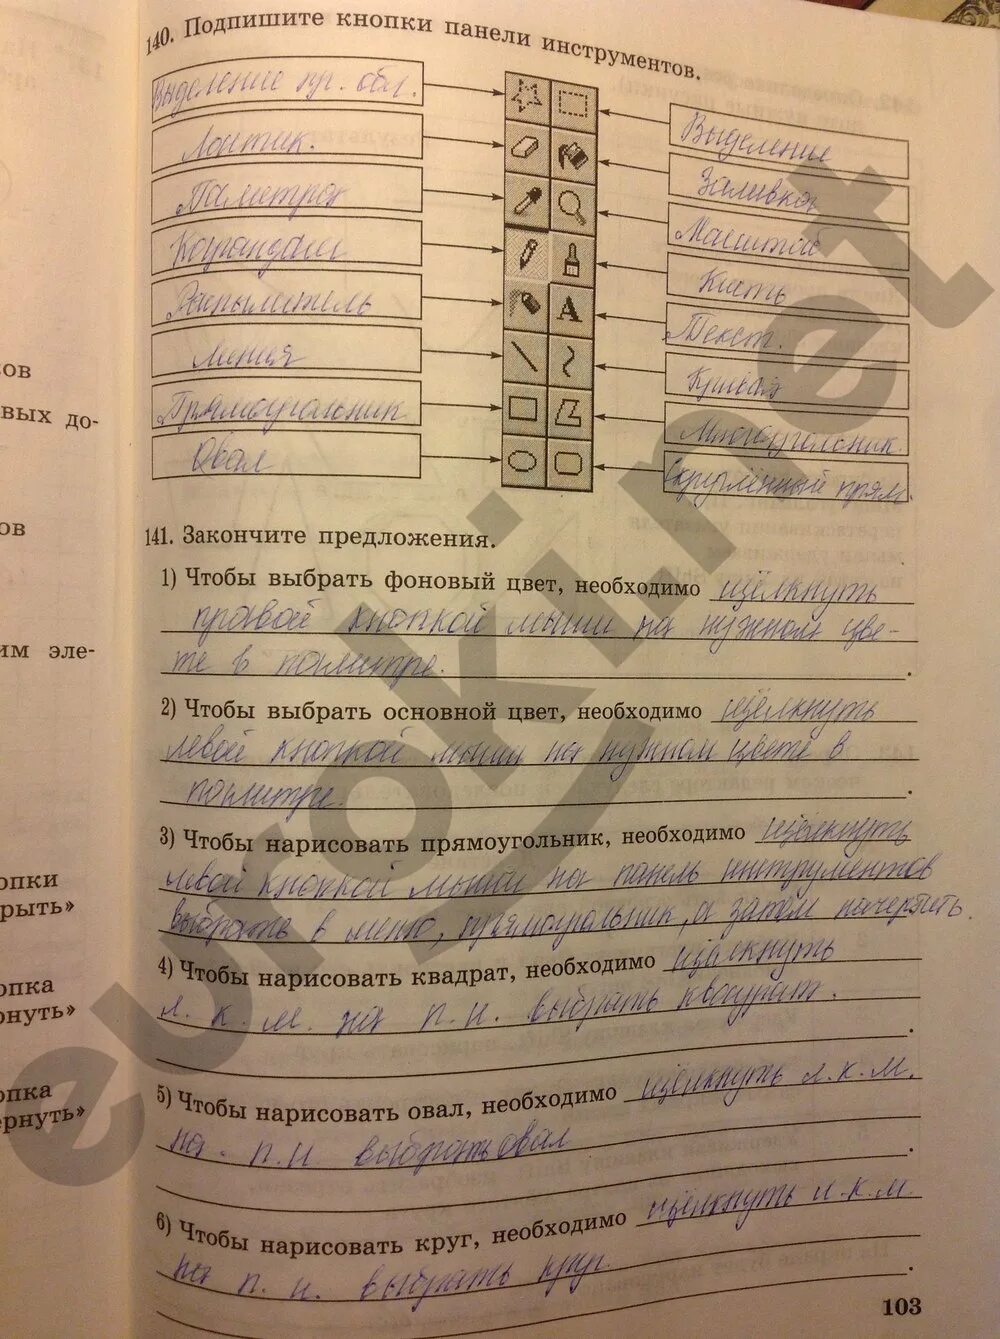 140. Подпишите кнопки панели инструментов.
Выделение пр. обл.
Ластик.
Палитра
Карандаш
Распылитель
Линия
Прямоугольник
Овал
Выделение
Заливка
Масштаб
Кисть
Текст.
Кривая
Многоугольник.
Скруглённый прям.
A
141. Закончите предложения.
1) Чтобы выбрать фоновый цвет, необходимо щёлкнуть
правой кнопкой мыши на нужном цве-
те в палитре.
2) Чтобы выбрать основной цвет, необходимо щёлкнуть
левой кнопкой мыши на нужном цвете в
палитре.
3) Чтобы нарисовать прямоугольник, необходимо щёлкнуть
левой кнопкой мыши на панель интрументов
выбрать в меню, прямоугольник, а затем начертить.
4) Чтобы нарисовать квадрат, необходимо щёлкнуть
л. к. м. на п. и. выбрать квадрат.
5) Чтобы нарисовать овал, необходимо щёлкнуть л. к. м.
на. п. и выбрать овал
6) Чтобы нарисовать круг, необходимо щёлкнуть л. к. м.
на п. и. выбрать круг.
103
ков
вых до-
ов
им эле-
опки
рыть»
опка
рнуть»
опка
ернуть»
eurokinet